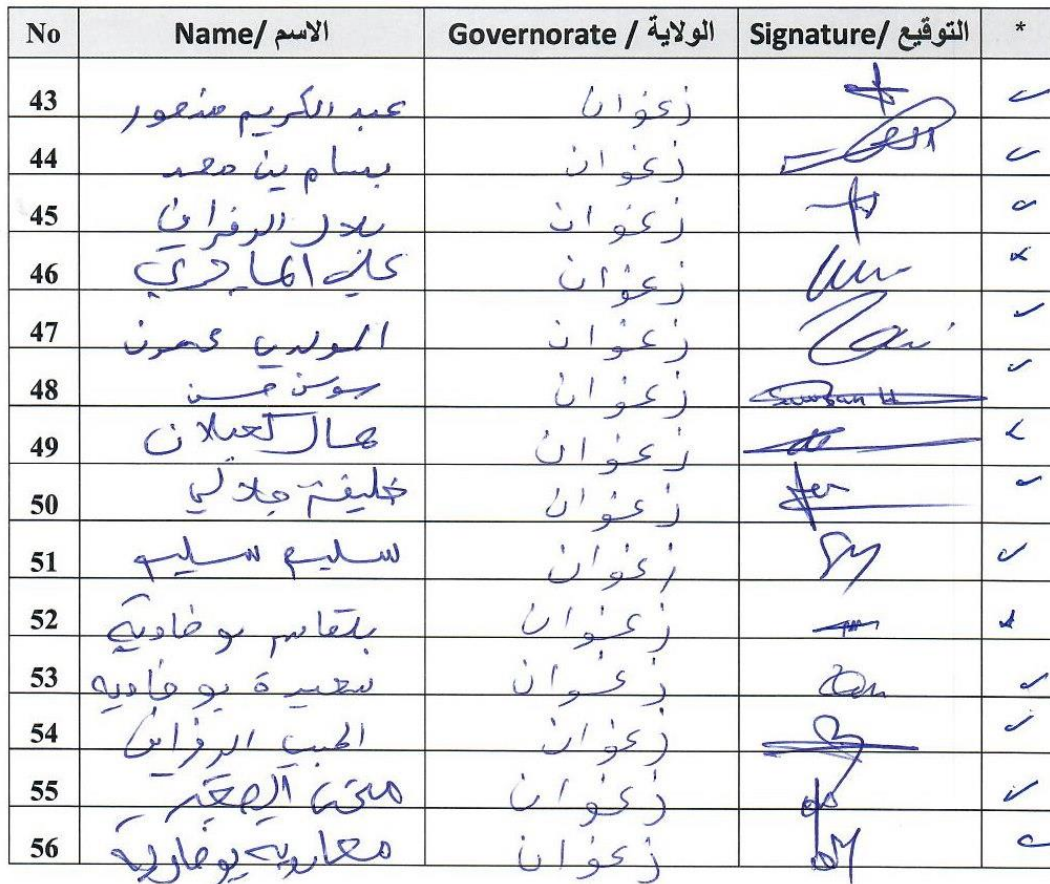 No Name/ الاسم Governorate / الولاية Signature/ التوقيع *
43 عبد الكريم منصور زغوان
44 بسام بن محمد زغوان
45 بلال الزفزاف زغوان
46 علي الماجري زغوان
47 المولدي زغوان
48 سوسن حسن زغوان Sawsan H
49 زغوان
50 خليفة جلالي زغوان
51 سليم سليم زغوان
52 بلقاسم بوخادية زغوان
53 سعيدة بوخادية زغوان
54 الحبيب زغوان
55 الصغير زغوان
56 معاوية بوخادية زغوان